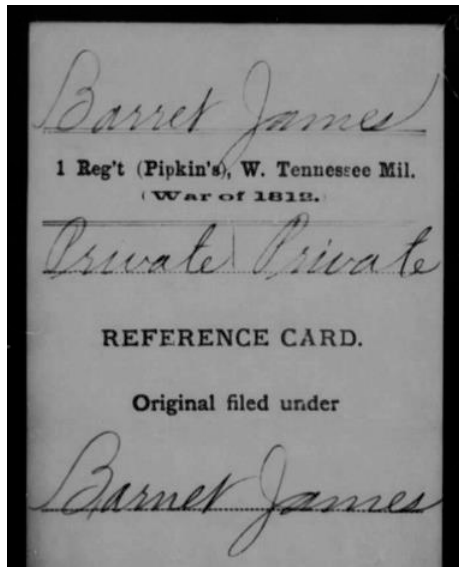 Barret James
1 Reg't (Pipkin's), W. Tennessee Mil.
(War of 1812.)
Private | Private
REFERENCE CARD.
Original filed under
Barnet James